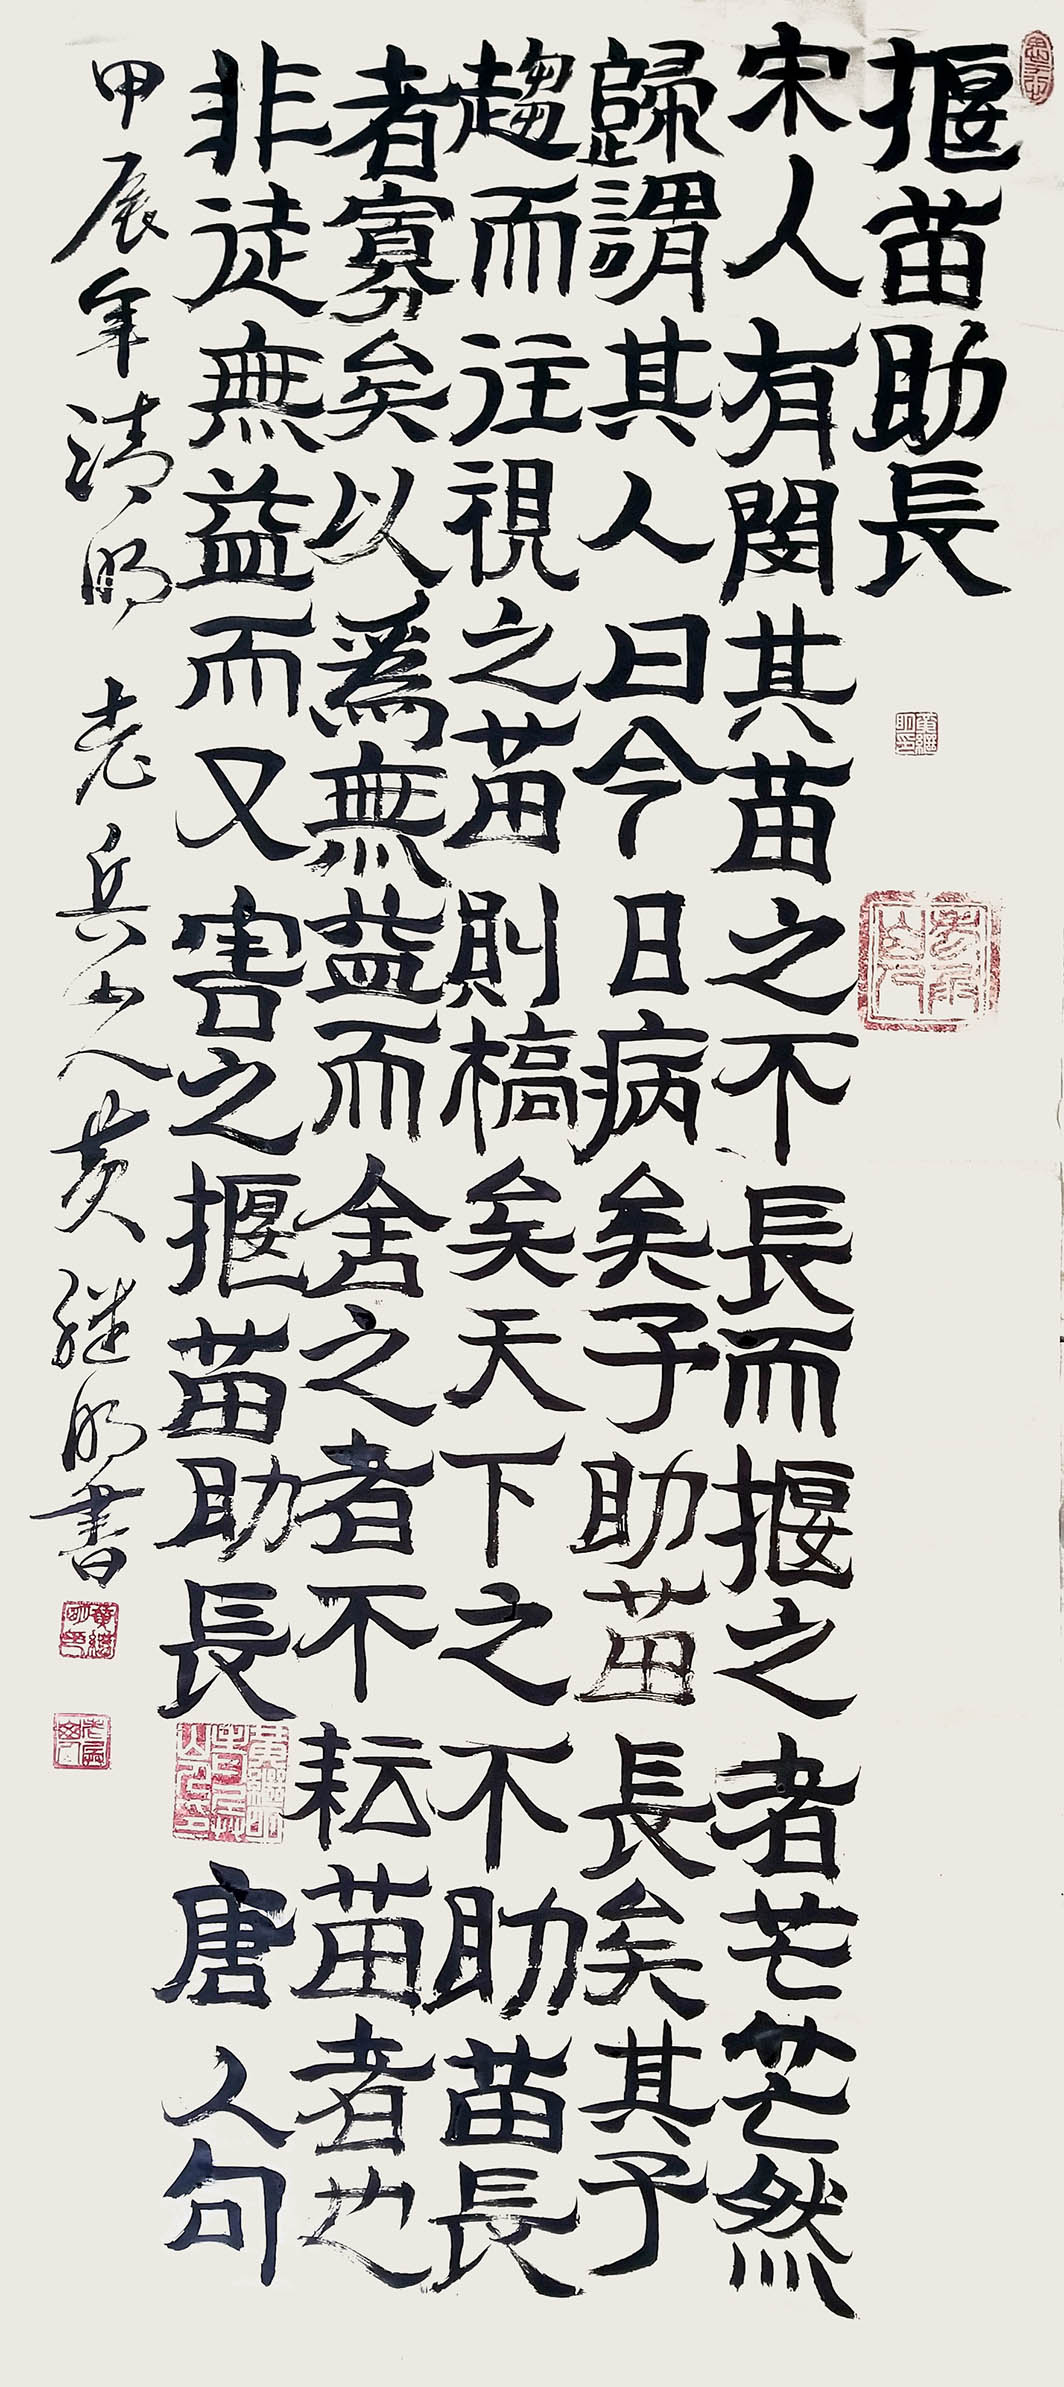 揠苗助長
宋人有閔其苗之不長而揠之者芒芒然
歸謂其人曰今日病矣予助苗長矣其予
趨而往視之苗則槁矣天下之不助苗長
者寡矣以爲無益而舍之者不耘苗者也
非徒無益而又害之揠苗助長 唐人句
甲辰年清明 老兵山人黄继明書